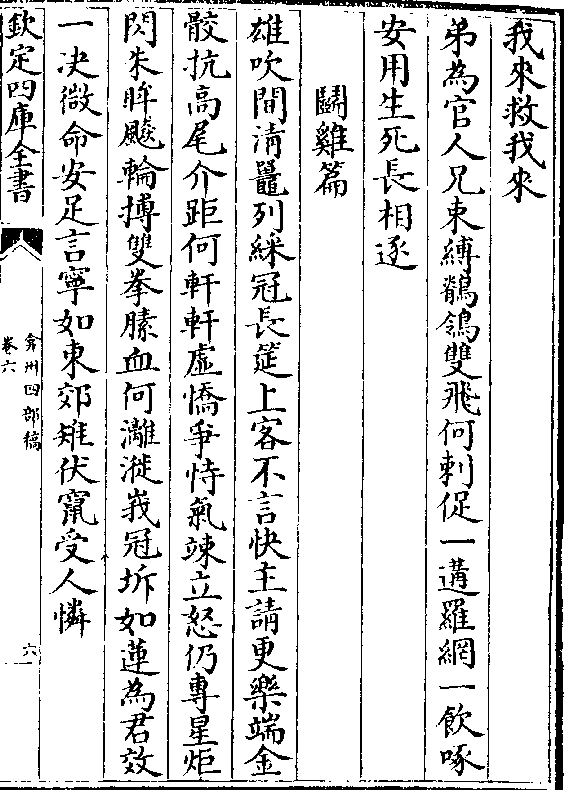 我來救我來
弟為官人兄束縛鶺鴒雙飛何刺促一遘羅網一飲啄
安用生死長相逐
鬭雞篇
雄吹間清鼉列綵冠長筵上客不言快主請更樂端金
骹抗高尾介距何軒軒虛憍爭恃氣竦立怒仍專星炬
閃朱眸飈輪搏雙拳膆血何灕漇峩冠坼如蓮為君效
一决微命安足言寧如東郊雉伏竄受人憐
欽定四庫全書
弇州四部稿
卷六
六